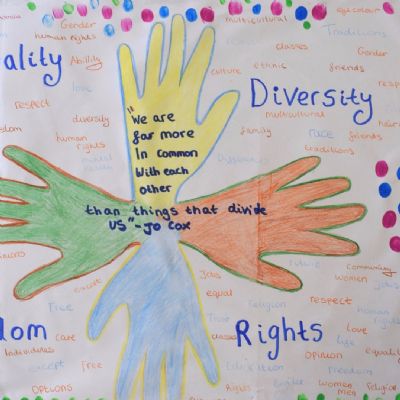 Gender
multicultural
eye colour
human rights
Traditions
classes
Ability
Gender
ality
culture
ethnic
friends
love
Diversity
respect
"We are
far more
In common
With each
other
than things that divide
US" - Jo Cox
diversity
multicultural
human
rights
family
race
friends
traditions
Jobs
future
community
women
jobs
except
equal
religion
respect
Free
human
rights
dom
care
Rights
Love
life
equality
Individules
opinion
except
Free
freedom
options
Rights
women
men
religion